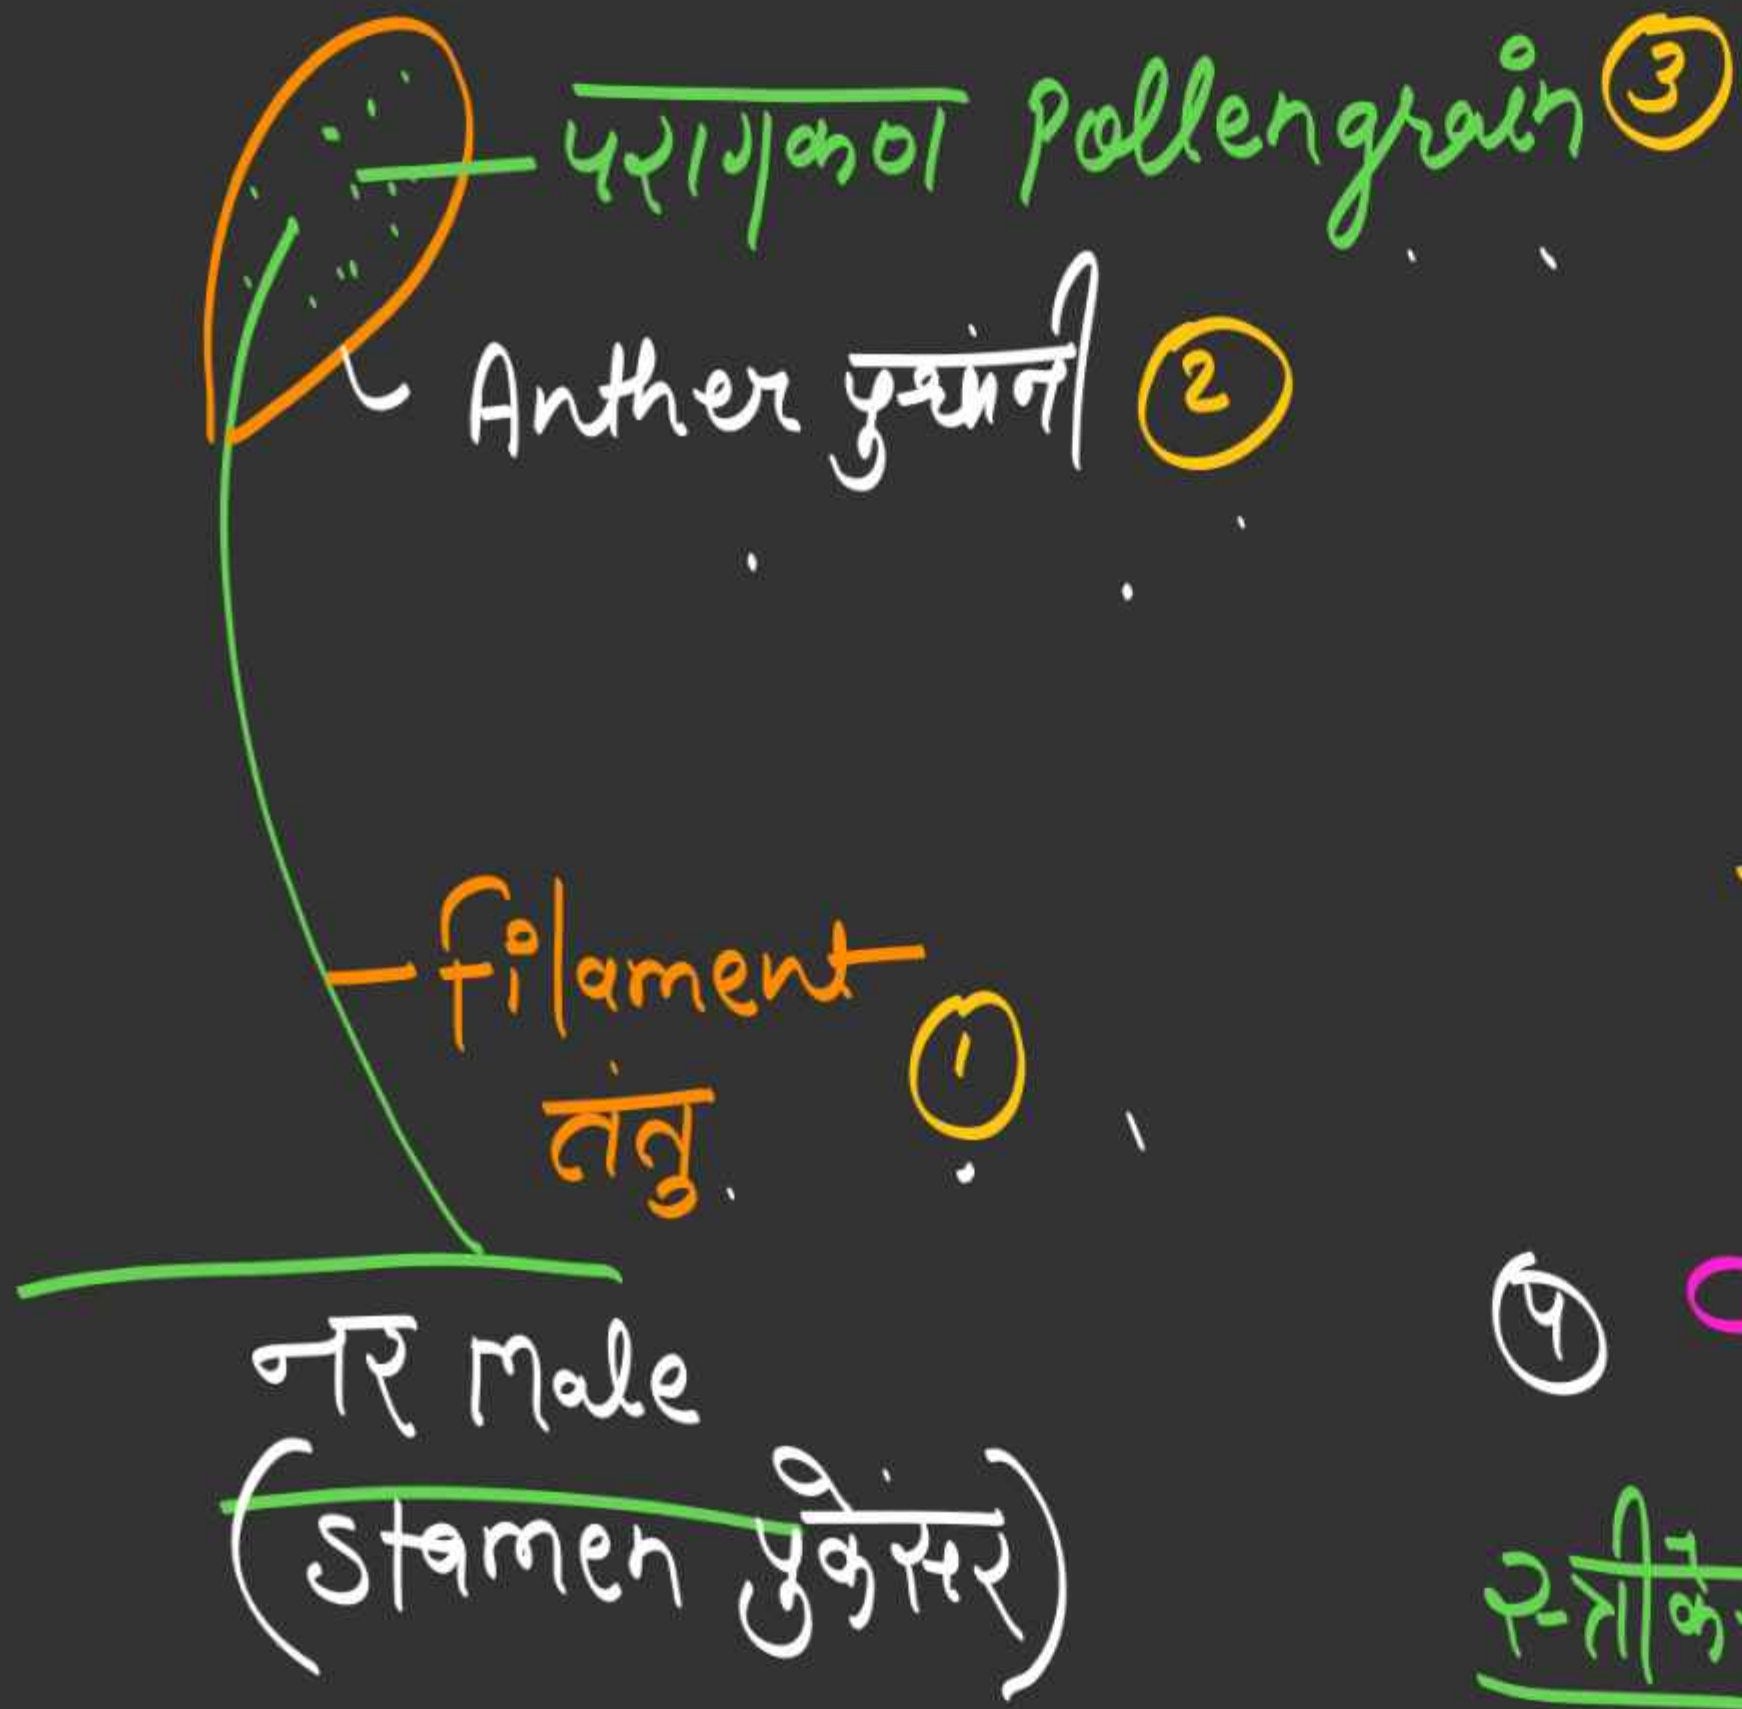 परागकण Pollengrain ③
Anther ②
filament
तंतु ①
नर Male
④
(Stamen पुंकेसर)